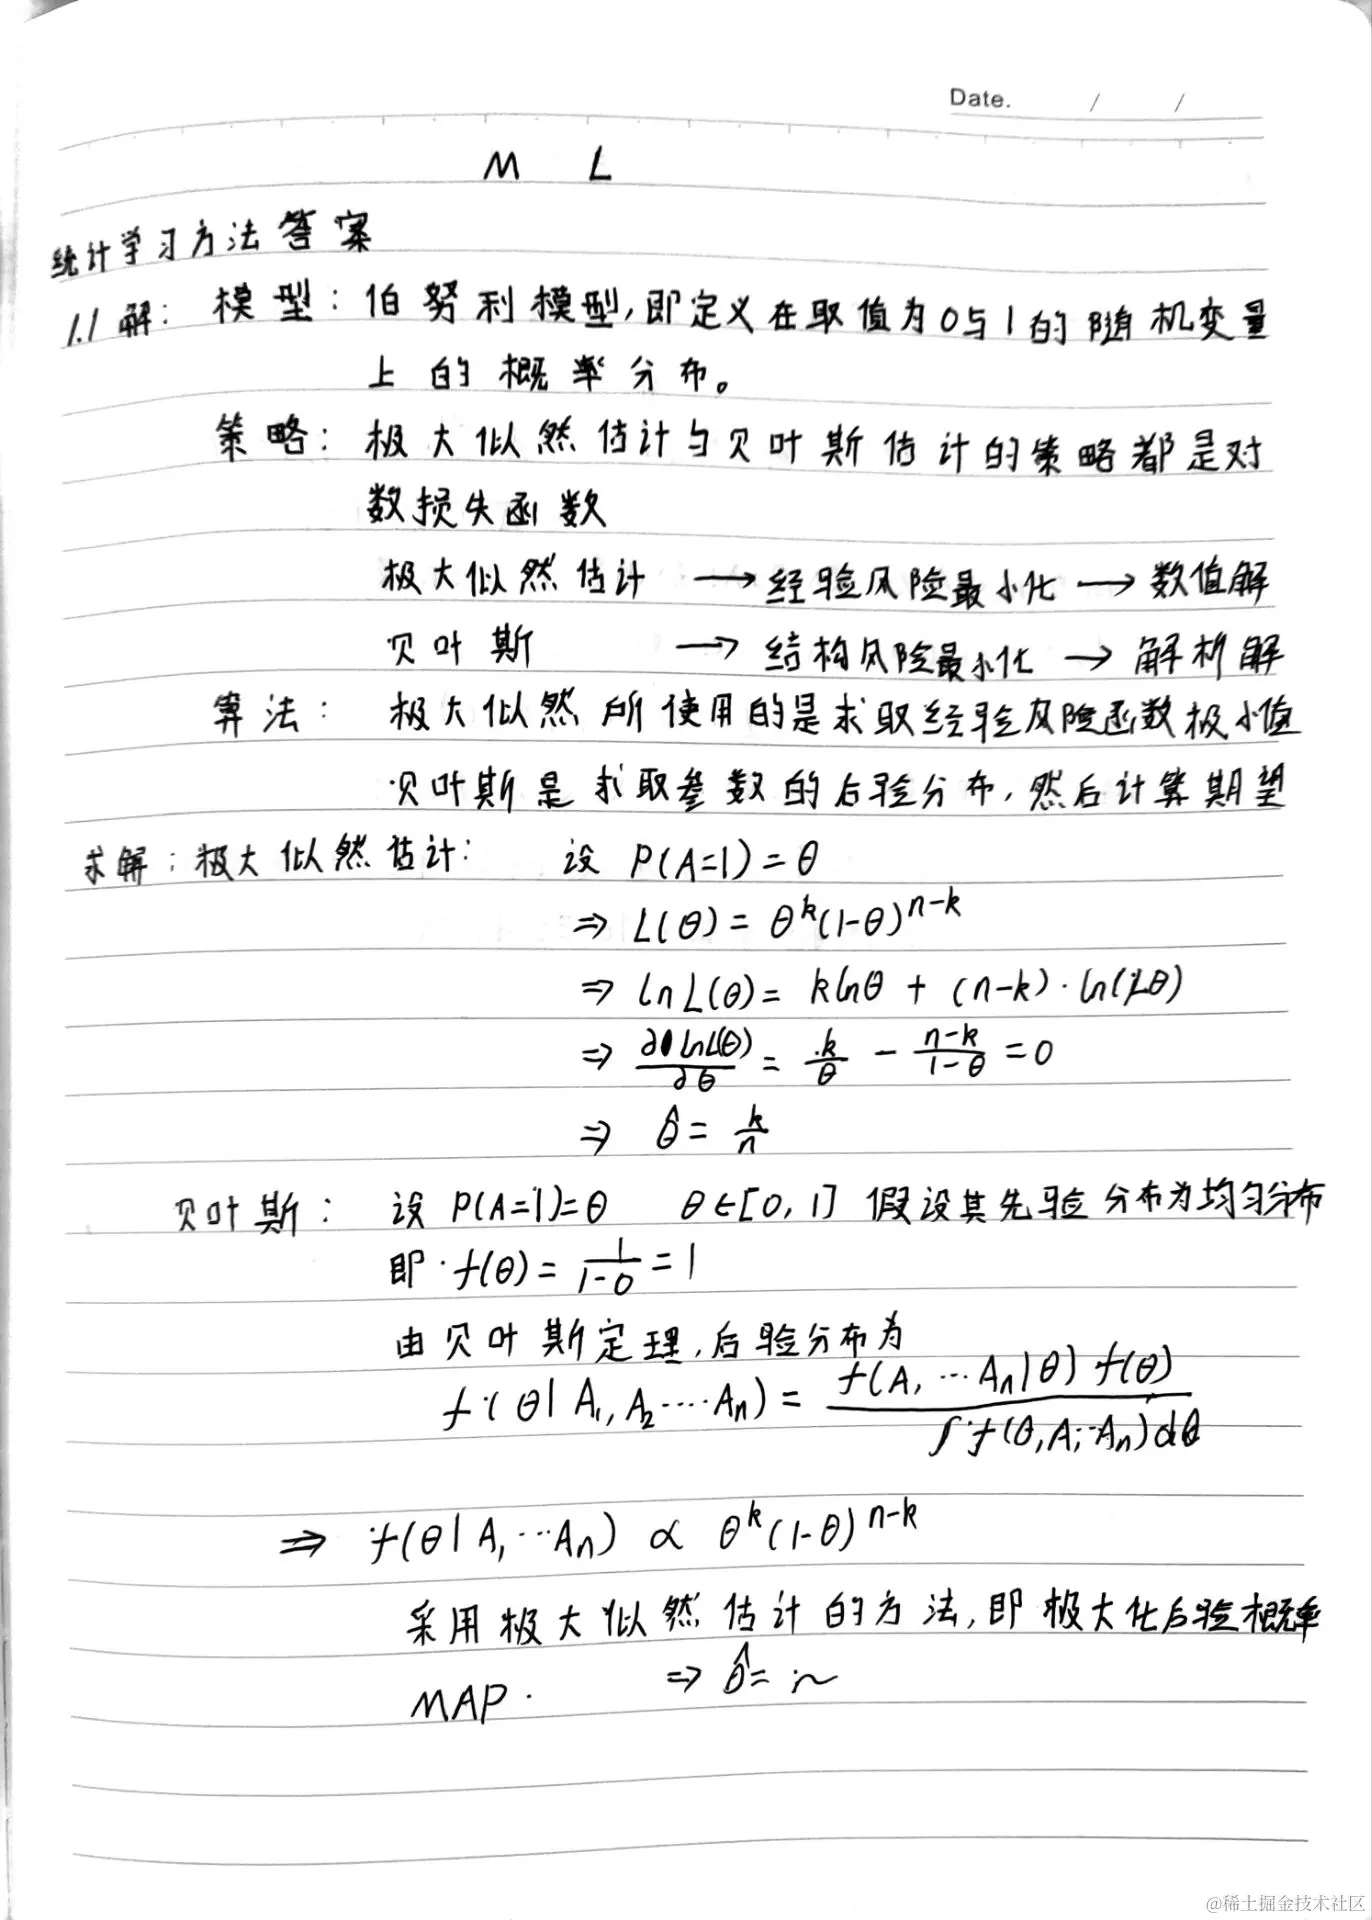 Date. / /
M L
统计学习方法答案
1.1 解: 模型: 伯努利模型,即定义在取值为0与1的随机变量
上的概率分布。
策略: 极大似然估计与贝叶斯估计的策略都是对
数损失函数
极大似然估计 → 经验风险最小化 → 数值解
贝叶斯 → 结构风险最小化 → 解析解
算法: 极大似然所使用的是求取经验风险函数极小值
贝叶斯是求取参数的后验分布,然后计算期望
求解: 极大似然估计: 设 P(A=1)=θ
⇒ L(θ) = θ^k(1-θ)^{n-k}
⇒ ln L(θ) = k lnθ + (n-k)·ln(1-θ)
⇒ ∂ lnL(θ)/∂θ = k/θ - (n-k)/(1-θ) = 0
⇒ θ̂ = k/n
贝叶斯: 设 P(A=1)=θ θ∈[0,1] 假设其先验分布为均匀分布
即 f(θ) = 1/(1-0) = 1
由贝叶斯定理,后验分布为
f(θ|A₁,A₂····Aₙ) = f(A₁···Aₙ|θ) f(θ) / ∫f(θ,A₁··Aₙ)dθ
⇒ f(θ|A₁···Aₙ) ∝ θ^k(1-θ)^{n-k}
采用极大似然估计的方法,即极大化后验概率
MAP. ⇒ θ̂ = ~
@稀土掘金技术社区